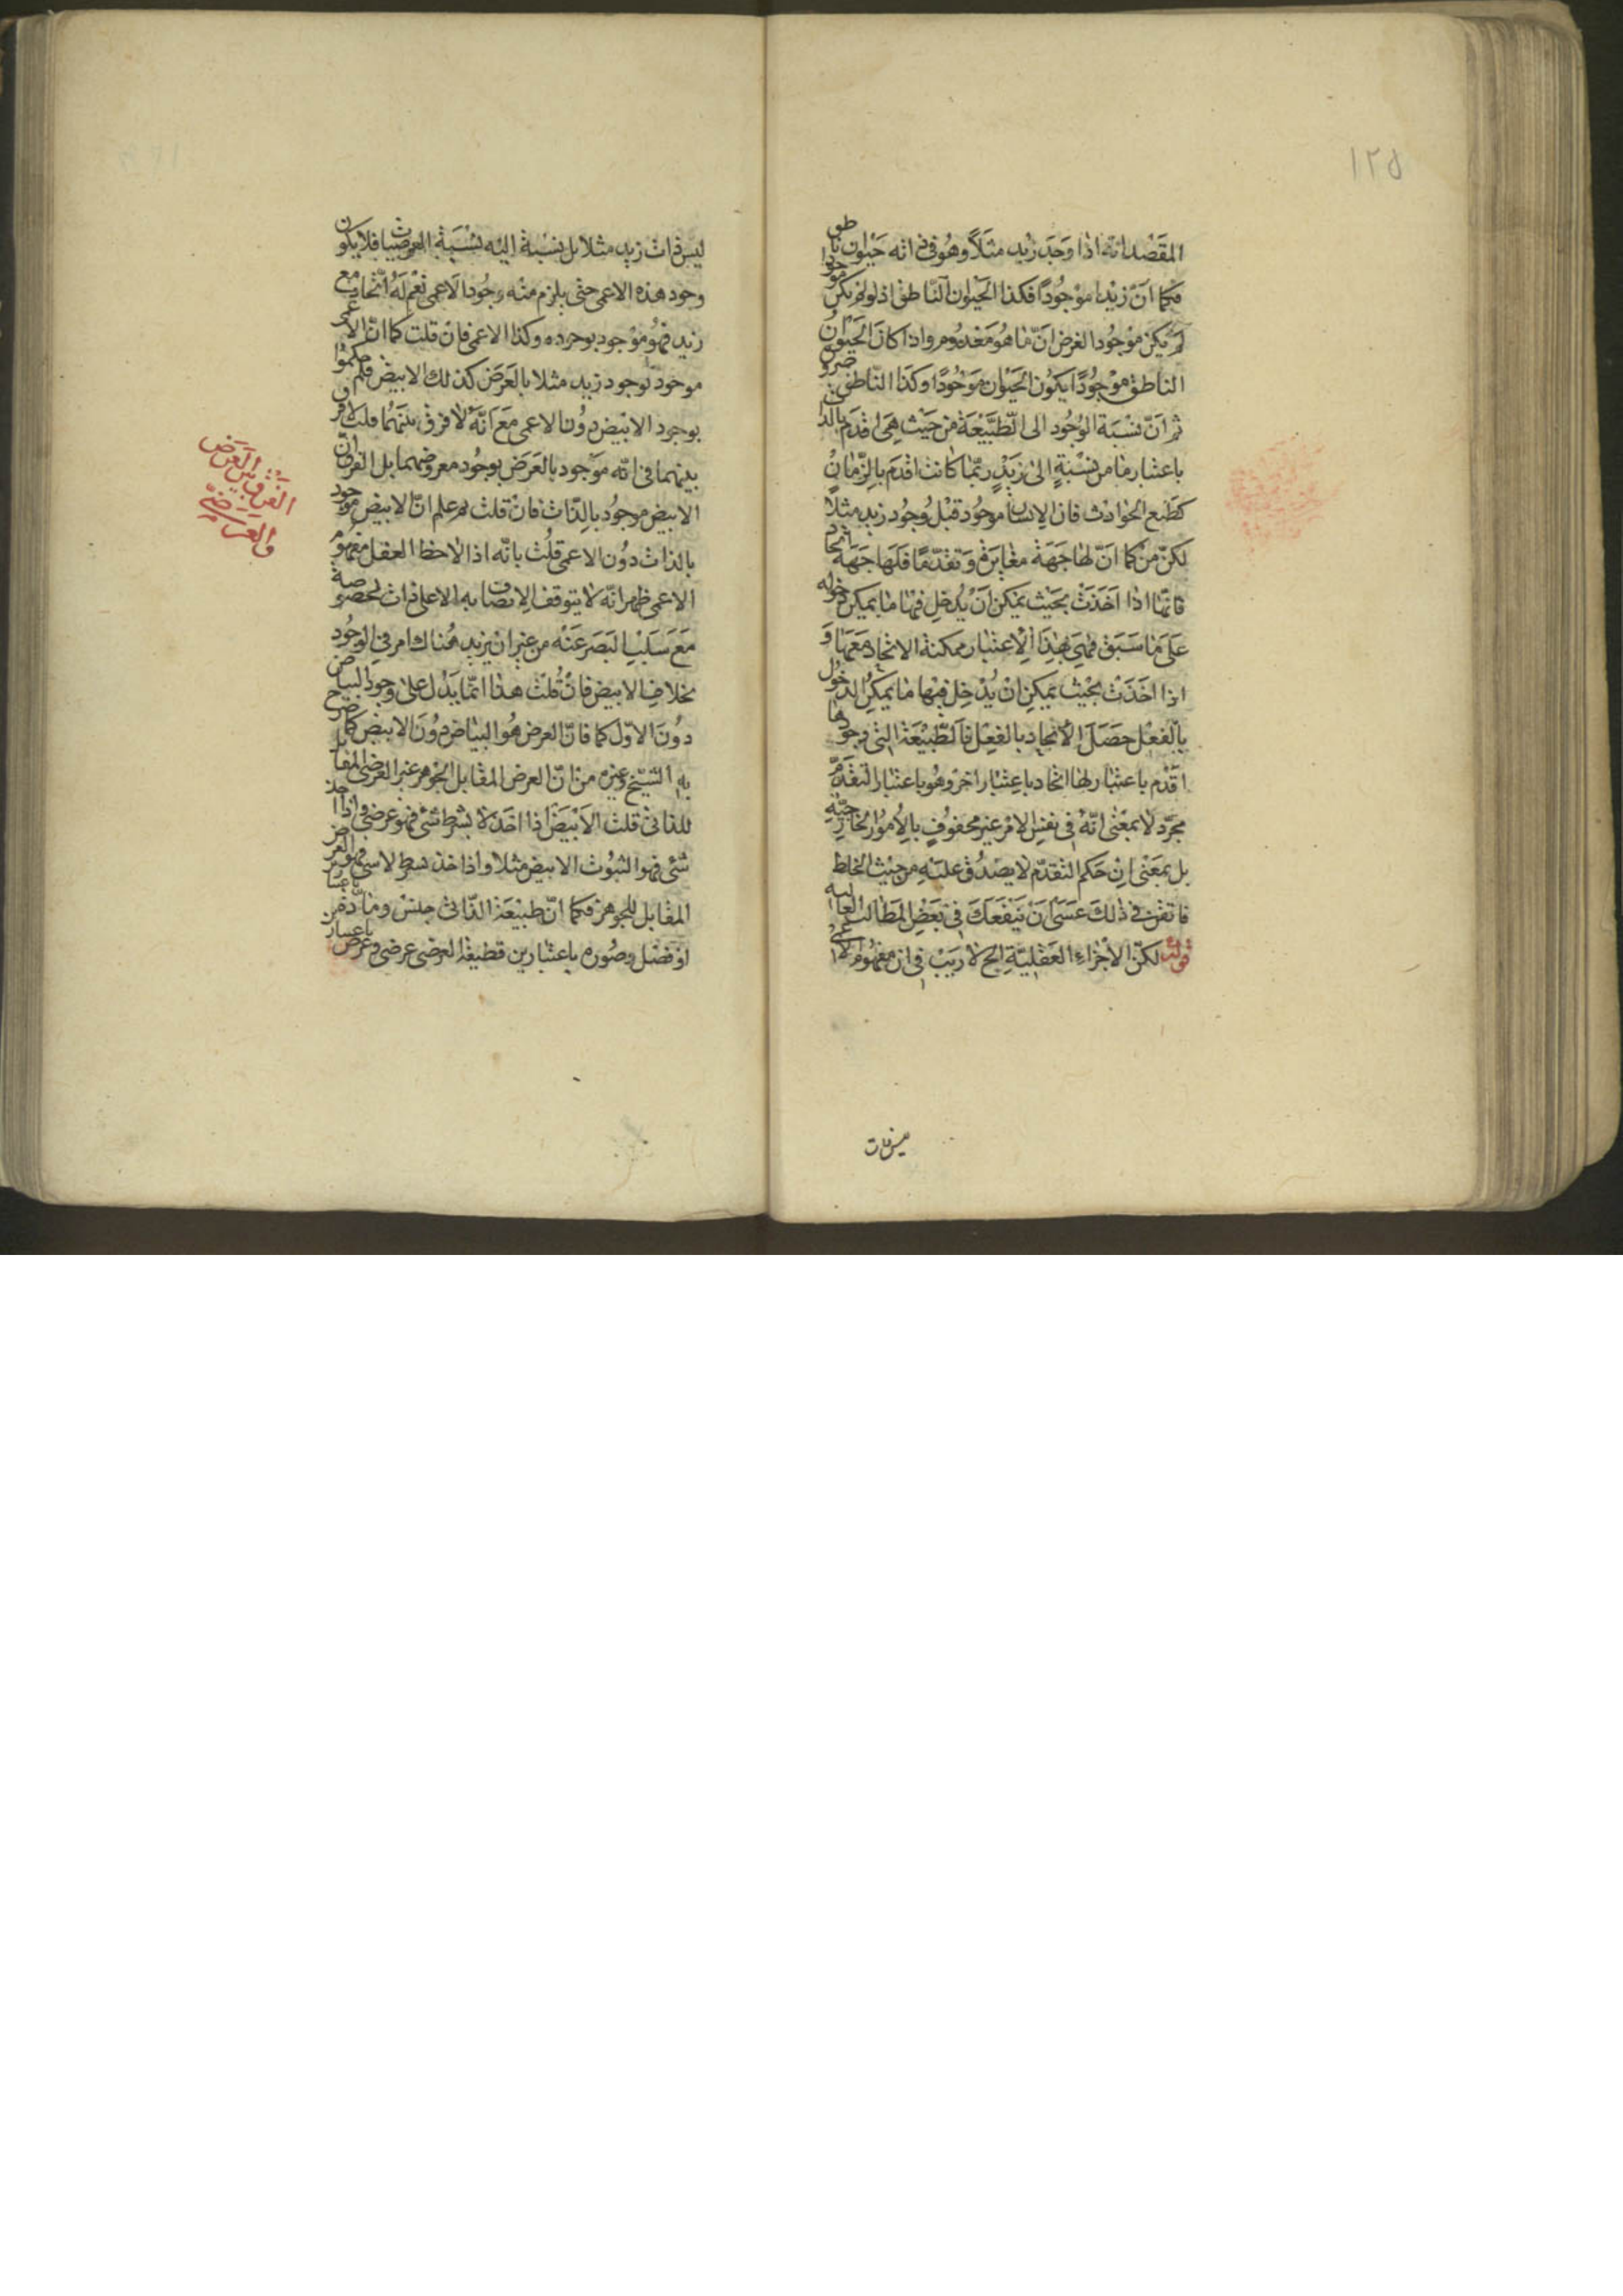 ١٢٥
المقصد انه اذا وجد زيد مثلاً وهو في ذاته حيوان ناطق
فكما انّ زيدا موجودًا فكذا الحيوان الناطق اذ لو لم يكن موجودا
لم يكن موجودا لغرض انّ ما هو معدوم واذا كان الحيوان
الناطق موجودًا يكون الحيوان موجودًا وكذا الناطق ضرورة
ثم انّ نسبة الوجود الى الطبيعة من حيث هي اقدم بالذات
باعتبار ما من نسبةٍ الى زيدٍ ربّما كانت اقدم بالزّمان
كطبع الحوادث فان الانسان موجود قبل وجود زيد مثلاً
لكنّ من كما انّ لها جهة مغايرة وتقدّمًا فلها جهة اتحاد
فانّها اذا اخذت بحيث يمكن ان يدخل فيها ما يمكن دخوله
على ما سبق فهي بهذا الاعتبار ممكنة الاتحاد معها و
اذا اخذت بحيث يمكن ان يدخل فيها ما يمكن الدخول
بالفعل حصل الاتحاد بالفعل فالطّبيعة التي وجودها
اقدم باعتبار لها اتحاد باعتبار اخر وهو باعتبار التقدّم
مجرّد لا بمعنى انّه في نفس الامر غير محفوفٍ بالامور الخارجيّة
بل بمعنى ان حكم التقدّم لا يصدق عليه من حيث الخلط
فاتقن في ذلك عسى ان ينفعك في بعض المطالب العالية
قوله لكنّ الاجزاء العقليّة الخ لا ريب في ان مفهوم الاعمى
ليس ذات
ليس ذات زيد مثلا بل نسبة اليه نسبة العرضيات فلا يكون
وجود هذه الاعمى حتى يلزم منه وجود الاعمى نعم له اتّحاد مع
زيد فهو موجود بوجوده وكذا الاعمى فان قلت كما انّ الاعمى
موجود بوجود زيد مثلا بالعرض كذلك الابيض فلم حكموا
بوجود الابيض دون الاعمى مع انّه لا فرق بينهما قلت لا فرق
بينهما في انّه موجود بالعرض بوجود معروضهما بل الفرق انّ
الابيض موجود بالذّات فان قلت لم علم انّ الابيض موجود
بالذات دون الاعمى قلت بانّه اذا لاحظ العقل مفهوم
الاعمى ظهر انّه لا يتوقف الاتصاف به الا على ذات لخصوصية
مع سلب البصر عنه من غير ان يزيد هناك امر في الوجود
بخلاف الابيض فان قلت هذا انّما يدل على وجود البياض
دون الاوّل كما فانّ العرض هو البياض دون الابيض كما صرح
به الشيخ وغيره من انّ العرض المقابل للجوهر غير العرضي المقابل
للذاتي قلت الابيض اذا اخذ لا بشرط شئ فهو عرضي واذا اخذ
شئ فهو الثبوت الابيض مثلا واذا اخذ بشرط لا شئ فهو العرض
المقابل للجوهر فكما انّ طبيعة الذّاتى جنس ومادّة باعتبارين
او فصل وصورة باعتبارين فطبيعة العرضى عرضى وعرض باعتبارين
الفرق بين العرض
والعرضيّ